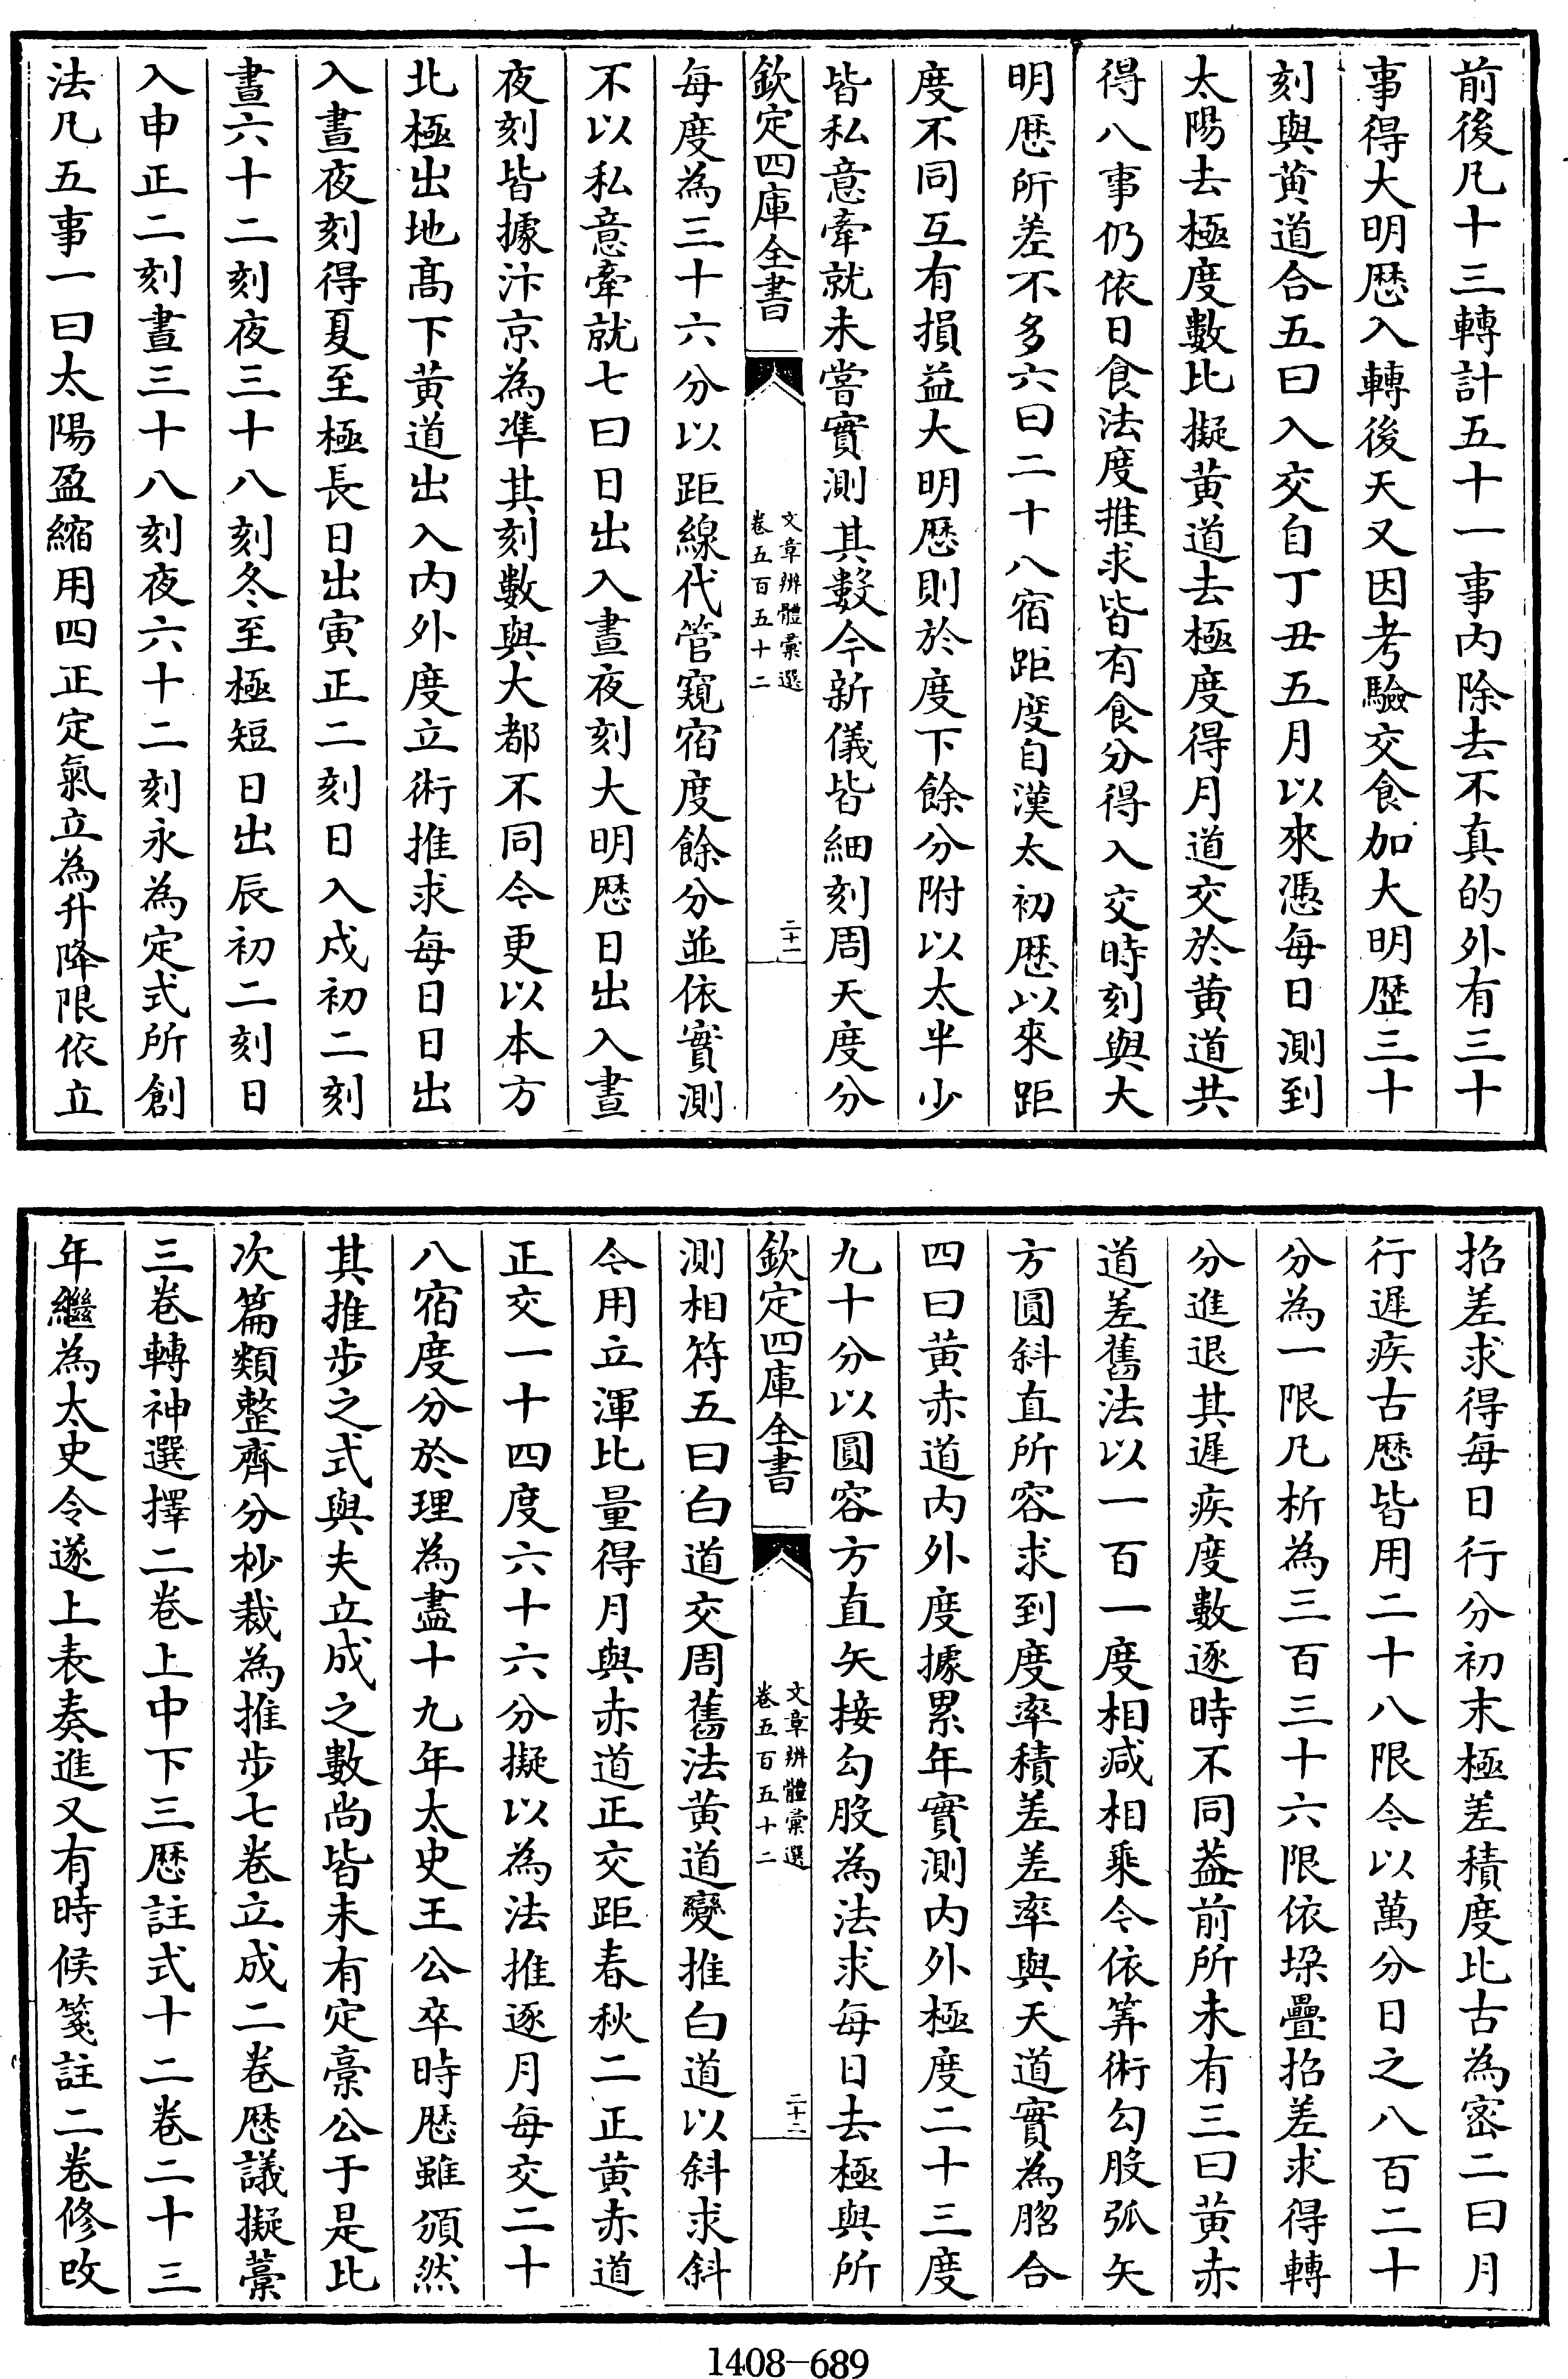 前後凡十三轉計五十一事内除去不真的外有三十
事得大明厯入轉後天又因考驗交食加大明歴三十
刻與黄道合五曰入交自丁丑五月以來憑每日測到
太陽去極度數比擬黄道去極度得月道交於黄道共
得八事仍依日食法度推求皆有食分得入交時刻與大
明厯所差不多六曰二十八宿距度自漢太初厯以來距
度不同互有損益大明厯則於度下餘分附以太半少
皆私意牽就未嘗實測其數今新儀皆細刻周天度分
欽定四庫全書
文章辨體彙選
卷五百五十二
二十一
每度為三十六分以距線代管窺宿度餘分並依實測
不以私意牽就七曰日出入晝夜刻大明厯日出入晝
夜刻皆據汴京為凖其刻數與大都不同今更以本方
北極出地髙下黄道出入内外度立術推求每日日出
入晝夜刻得夏至極長日出寅正二刻日入戍初二刻
晝六十二刻夜三十八刻冬至極短日出辰初二刻日
入申正二刻晝三十八刻夜六十二刻永為定式所創
法凡五事一曰太陽盈縮用四正定氣立為升降限依立
招差求得每日行分初末極差積度比古為宻二曰月
行遲疾古厯皆用二十八限今以萬分日之八百二十
分為一限凡析為三百三十六限依垜疊招差求得轉
分進退其遲疾度數逐時不同葢前所未有三曰黄赤
道差舊法以一百一度相减相乘今依筭術勾股弧矢
方圓斜直所容求到度率積差差率與天道實為脗合
四曰黄赤道内外度據累年實測内外極度二十三度
九十分以圓容方直矢接勾股為法求每日去極與所
欽定四庫全書
文章辨體彙選
卷五百五十二
二十二
測相符五曰白道交周舊法黄道變推白道以斜求斜
今用立渾比量得月與赤道正交距春秋二正黄赤道
正交一十四度六十六分擬以為法推逐月每交二十
八宿度分於理為盡十九年太史王公卒時厯雖頒然
其推步之式與夫立成之數尚皆未有定稾公于是比
次篇類整齊分秒裁為推步七卷立成二卷厯議擬藁
三卷轉神選擇二卷上中下三厯註式十二卷二十三
年繼為太史令遂上表奏進又有時候箋註二卷修改
1408-689